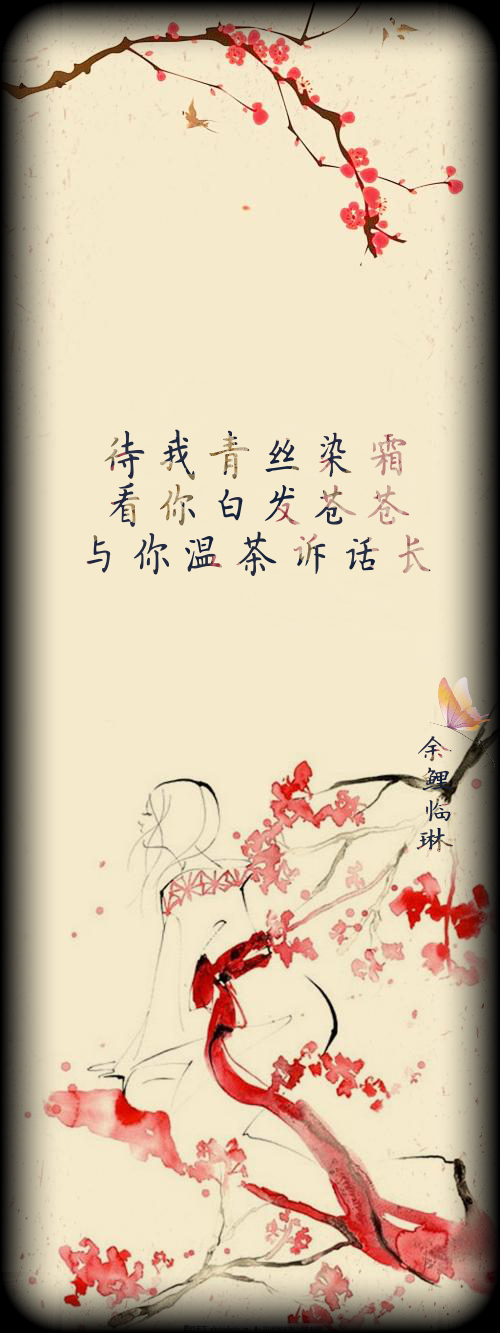 待我青丝染霜
看你白发苍苍
与你温茶诉话长
余鲤临琳